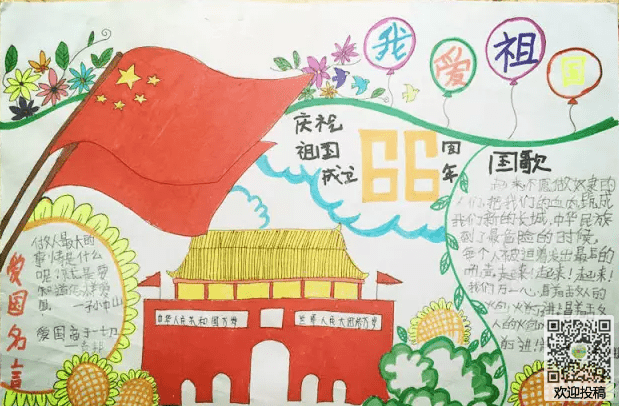 我爱祖国
庆祝
祖国
成立
66
周
年
国歌
起来不愿做奴隶的
人们把我们的血肉筑成
我们新的长城,中华民族
到了最危险的时候,
每个人被迫着发出最后的
吼声,起来!起来!起来!
我们万众一心,冒着敌人的
炮火
前进
爱国名言
做人最大的
事情是什么
呢
就是要
知道怎样爱
国
孙中山
爱国高于一切
中华人民共和国万岁
世界人民大团结万岁
欢迎投稿